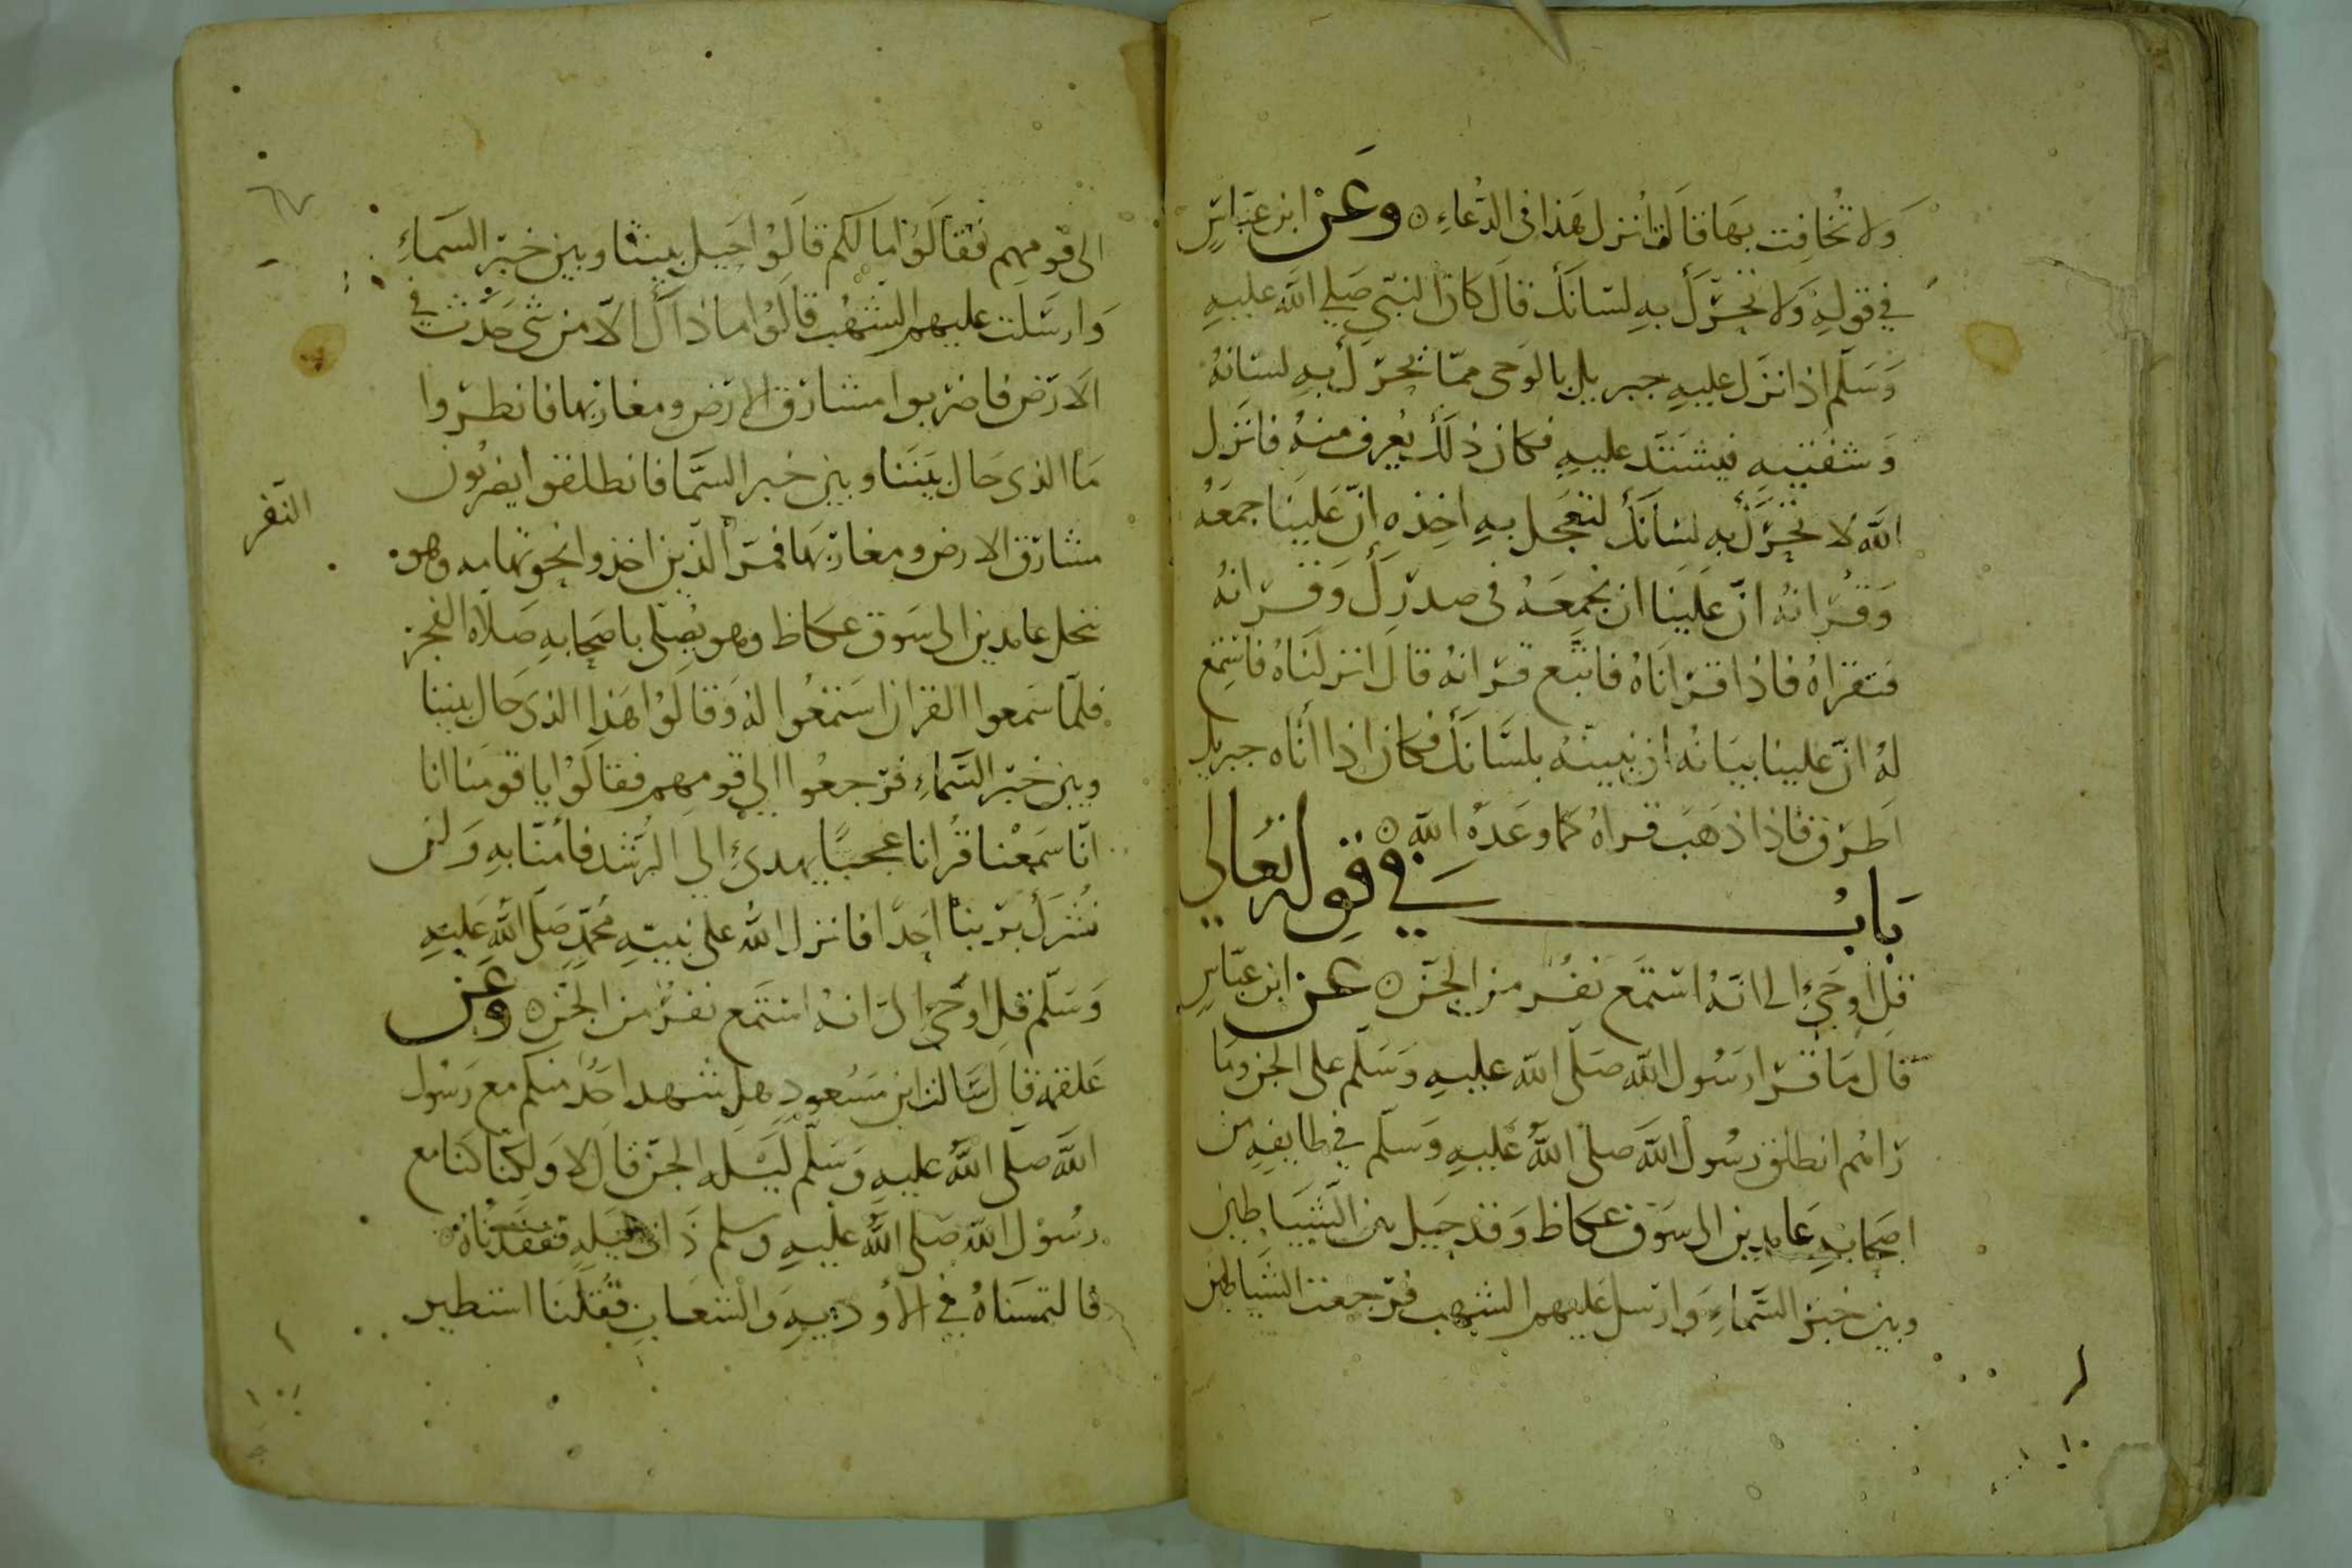 ولا تُخافِت بهَا قالت اُنزل هَذا في الدّعاءِ ۞ وعَنْ ابن عبّاسٍ
في قولهِ وَلا تحرّك بهِ لسَانكَ قال كان النبّي صَلى الله عليهِ
وَسَلّم اذا نزل عليهِ جبريل بالوَحى ممّا يحرّك بهِ لسَانهُ
وَشفتيهِ فيشتَد عليهِ فكان ذلك يُعرف منهُ فانزل
الله لا تحرّك بهِ لسَانكَ لتعجَل بهِ اخذه انّ عَلينَا جمعَهُ
وَقُرانهُ انّ عَلينا ان نجمعَهُ في صدرك وَقرانهُ
فتقراهُ فاذا قرانَاهُ فاتّبع قرانهُ قال انزلنَاهُ فاستمع
لهُ انّ علينا بيَانهُ ان نبينهُ بلسَانكَ فكان اذا اتاه جبريل
اَطرَق فاذا ذهَبَ قراهُ كما وعَدهُ الله ۞
بَابُ في قولهِ تعَالى
قل اُوحِيَ الى انهُ استمَع نَفرٌ من الجنّ ۞ عن ابن عبّاسٍ
قال مَا قرا رسُول الله صَلّى الله عليهِ وَسَلّم على الجن ومَا
رَاهُم انطلق رسُول الله صلى اللهُ عَليهِ وَسلّم في طايفةٍ من
اصحابهِ عَامدين الى سَوق عكاظ وَقد حيل بين الشيَاطين
وبين خبَر السّماءِ وَارسل عَليهم الشهب فرجعت الشيَاطين
الى قومهم فقالوُا مَا لكم قالوُا حيل بيننا وبين خبر السّماءِ
وَارسَلت عليهم الشهُب قالوُا ما ذاك الاّ من شى حَدث في
الارض فاضربوا مشارق الارض ومغاربها فانظروا
مَا الذى حَال بيننا وبين خبر السّما فانطلقوا يضربُون
مشارق الارض ومغاربهَا فمرّ الذين اخذوا نحو تهامه وهو
النّفر
بنخل عامدين الى سَوق عكاظ وهو يُصلّى باصحَابهِ صَلاة الفجر
فلمّا سَمعوا القران استمعُوا له وَقالوُا هَذا الذى حَال بيننا
وبين خبَر السَّماءِ فرجعُوا الى قومهم فقالوُا يا قومنا انا
انّا سَمعْنا قرُانا عجبًا يهدى الى الرُّشد فامُنّا بهِ وَلن
نُشركَ برَبنا احَدًا فانزل اللهُ على نبيّهِ محُمّدٍ صَلّى اللهُ عَليهِ
وَسَلّم قل اوحِيَ الىّ انهُ استمَع نفرٌ من الجنّ ۞ وعَن
عَلقمة قال سَالت ابن مسَعودٍ هل شهد احَدٌ منكم مع رَسُول
الله صَلّى اللهُ عليهِ وَسَلّم ليَلة الجنّ قال لا وَلكنّا كنّا مع
رسُول الله صَلّى اللهُ عليهِ وسلم ذات ليَلةٍ ففقدْناهُ
فالتمسَناهُ في الأودِيةِ وَالشعَابِ فقُلنَا استطير